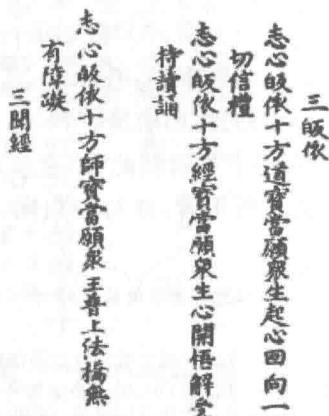 三皈依
志心皈依十方道寶當願眾生起心回向一
切信禮
志心皈依十方經寶當願眾生心開悟解受
持讀誦
志心皈依十方師寶當願眾生普上法橋無
有障礙
三聞經